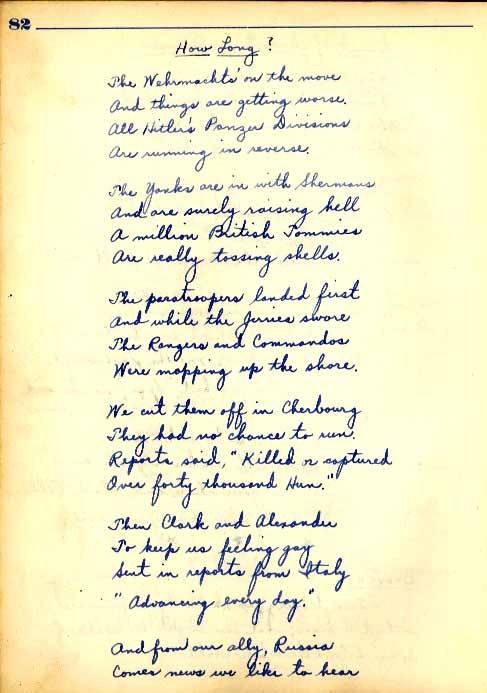 82
How Long?
The Wehrmachts' on the move
And things are getting worse.
All Hitler's Panzer Divisions
Are running in reverse.
The Yanks are in with Shermans
And are surely raising hell
A million British Tommies
Are really tossing shells.
The paratroopers landed first
And while the Jerries swore
The Rangers and Commandos
Were mopping up the shore.
We cut them off in Cherbourg
They had no chance to run.
Reports said, "Killed or captured
Over forty thousand Hun."
Then Clark and Alexander
To keep us feeling gay
Sent in reports from Italy
"Advancing every day."
And from our ally, Russia
Comes news we like to hear